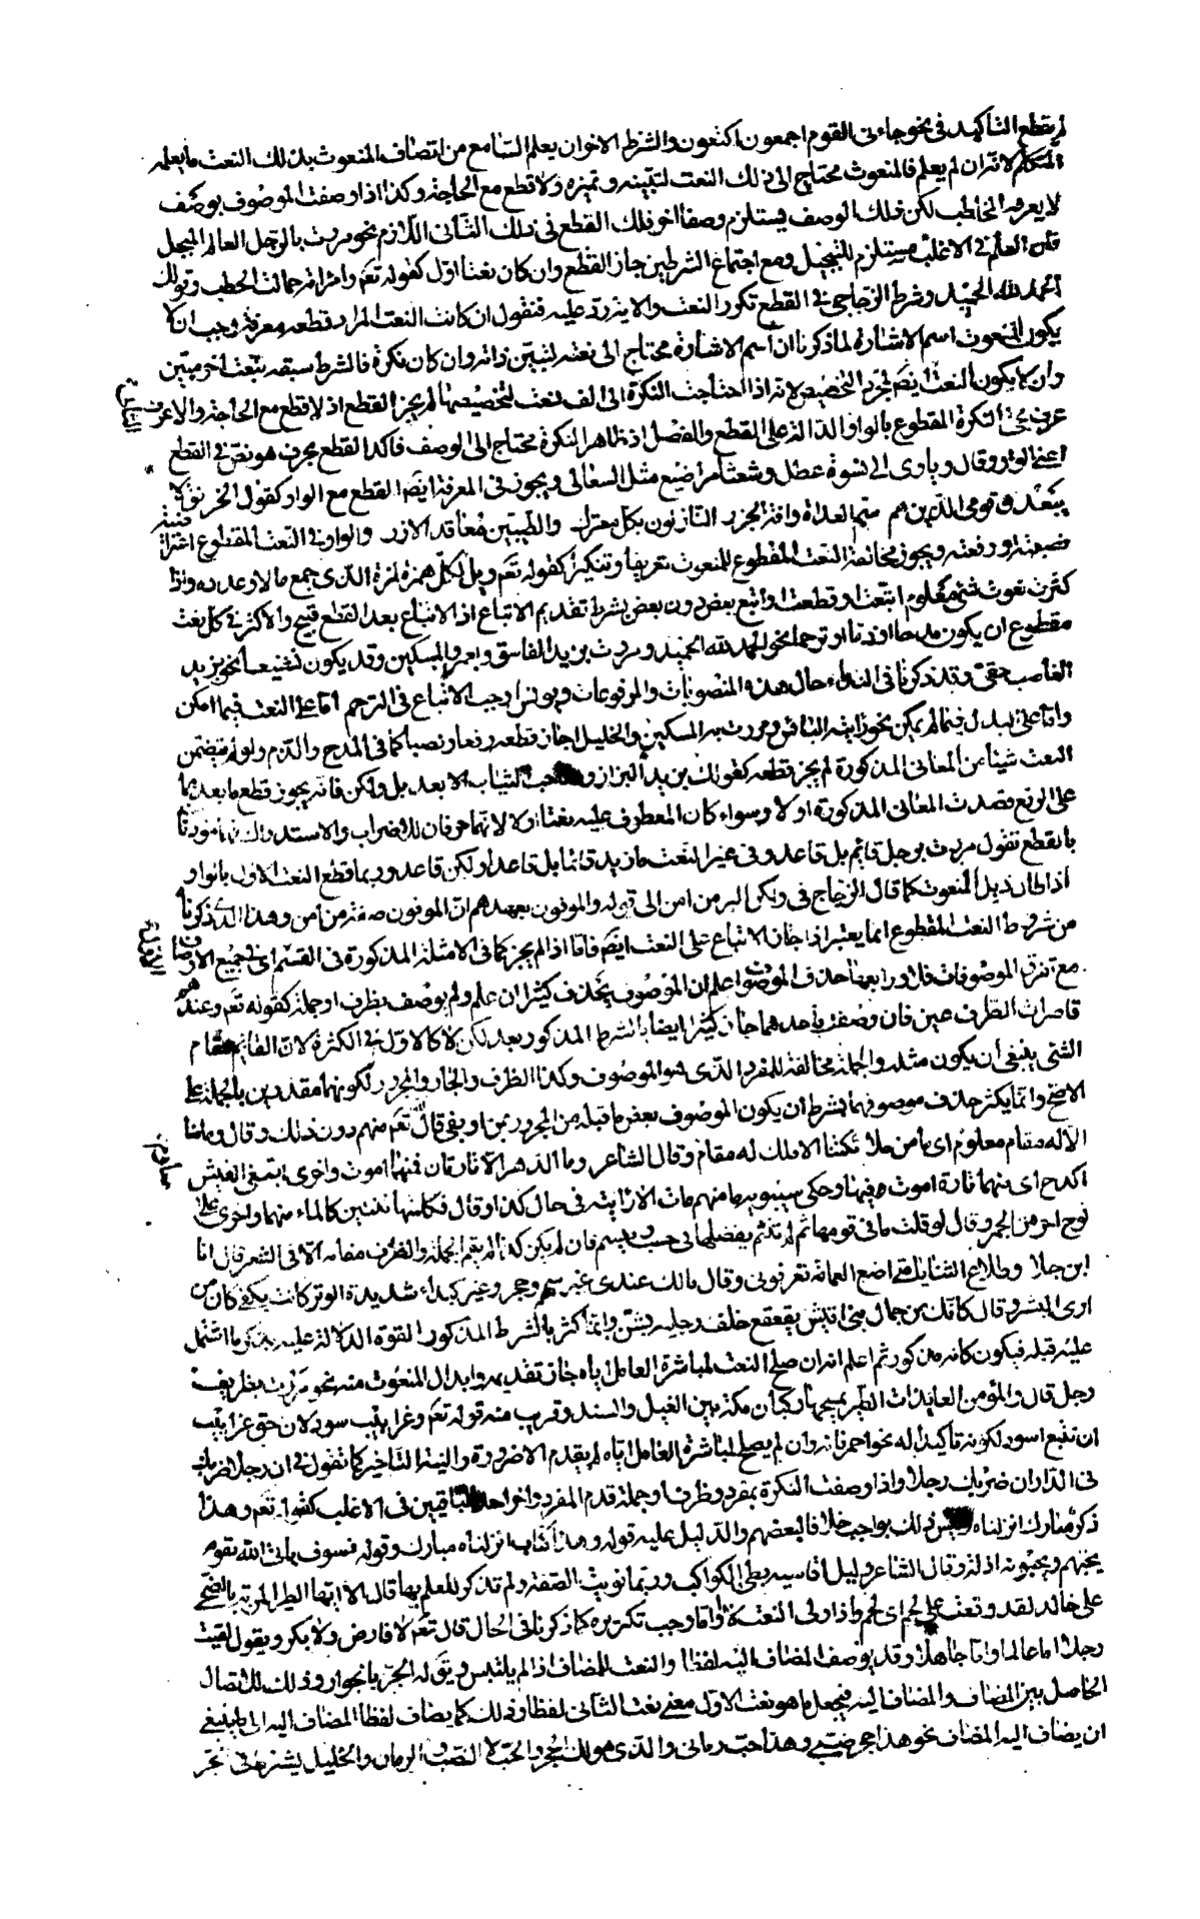 لم يقطع التأكيد في نحو جاءني القوم اجمعون اكتعون والشرط الاخر ان يعلم السامع من اتصاف المنعوت بذلك النعت ما يعلمه
المتكلم لانه ان لم يعلم فالمنعوت محتاج الى ذلك النعت لتبيينه وتميزه ولا قطع مع الحاجة وكذا اذا وصفت الموصوف بوصف
لا يعرفه المخاطب لكن ذلك الوصف يستلزم وصفا اخر فلك القطع في ذلك الثاني اللازم نحو مررت بالرجل العالم المبجل
فان العلم في الاغلب مستلزم للتبجيل ومع اجتماع الشرطين جاز القطع وان كان نعتا اول كقوله تعم وامراته حمالة الحطب وقولك
الحمد لله الحميد وشرط الزجاجي في القطع تكرر النعت والاية رد عليه فنقول ان كانت النعت المراد قطعه معرفة وجب ان لا
يكون المنعوت اسم الاشارة لما ذكرنا ان اسم الاشارة محتاج الى نعته لتبيين ذاته وان كان نكرة فالشرط سبقه بنعت اخر مبين
وان لا يكون النعت ايضم لمجرد التخصيص لانه اذا احتاجت النكرة الى الف نعت لتخصيصها لم يجز القطع اذ لا قطع مع الحاجة والاعرف
مجئ النكرة المقطوع بالواو الدالة على القطع والفصل اذ ظاهر النكرة محتاج الى الوصف فاكد القطع بحرف هو نص في القطع
اعني الواو وقال وياوى الى نسوة عطل وشعثا مراضيع مثل السعالى ويجوز في المعرفة ايضم القطع مع الواو كقول الخرنق لا
يبعدن قومي الذين هم سم العداة وافة الجزر النازلون بكل معترك والطيبين معاقد الازر والواو في النعت المقطوع اعتراضية
نصبته او رفعته ويجوز مخالفة النعت المقطوع للمنعوت تعريفا وتنكيرا كقوله تعم ويل لكل همزة لمزة الذي جمع مالا وعدده واذا
كثرت نعوت شئ معلوم اتبعت وقطعت او اتبع بعض دون بعض بشرط تقديم الاتباع اذ الاتباع بعد القطع قبيح والاكثر في كل نعت
مقطوع ان يكون مدحا او ذما او ترحما نحو الحمد لله الحميد ومررت بزيد الفاسق وبعمرو المسكين وقد يكون تشنيعا نحو بزيد
الغاصب حقى وقد ذكرنا في النداء حال هذه المنصوبات والمرفوعات ويونس اوجب الاتباع في الترحم اما على النعت فيما امكن
واما على البدل فيما لم يمكن نحو رايته البائس ومررت به المسكين والخليل اجاز قطعه رفعا ونصبا كما في المدح والذم ولو لم يتضمن
النعت شيئا من المعاني المذكورة لم يجز قطعه كقولك بزيد البزاز صاحب الثياب الا بعد بل ولكن فانه يجوز قطع ما بعدهما
على الرفع قصدت المعاني المذكورة او لا وسواء كان المعطوف عليه نعتا او لا لانهما حرفان للاضراب والاستدراك
بالقطع تقول مررت برجل قائم بل قاعد وفي غير النعت ما زيد قائما بل قاعد او لكن قاعد وربما قطع النعت الاول بالواو
اذا طال ذيل المنعوت كما قال الزجاج في ولكن البر من امن الى قوله والموفون بعهدهم ان الموفون صفة من امن وهذا الذي ذكرنا
من شروط النعت المقطوع انما يعتبر اذا جاز الاتباع على النعت ايضم فاما اذا لم يجز كما في الامثلة المذكورة في القسم اي في جميع الاوصاف
مع تفرق الموصوفات فلا ورابعها حذف الموصوف اعلم ان الموصوف يحذف كثيرا ان علم ولم يوصف بظرف او جملة كقوله تعم وعندهم
قاصرات الطرف عين فان وصف باحدهما جاز كثيرا ايضا بالشرط المذكور بعد لكن لا كالاول في الكثرة لان القائم مقام
الشئ ينبغي ان يكون مثله والجملة مخالفة للمفرد الذي هو الموصوف وكذا الظرف والجار والمجرور لكونهما مقدرين بالجملة على
الاصح وانما يكثر حذف موصوفهما بشرط ان يكون الموصوف بعض ما قبله من المجرور بمن او بفي قال تعم ومنهم دون ذلك وقال وما منا
الا له مقام معلوم اي ما من ملائكتنا الا ملك له مقام وقال الشاعر وما الدهر الا تارتان فمنهما اموت واخرى ابتغي العيش
اكدح اي منهما تارة اموت فيها وحكى سيبويه ما منهم مات الا رايته في حال كذا وقال فكلمتها ثنتين كالماء منهما واخرى على
لوح احر من الجمر وقال لو قلت ما في قومها لم تيثم يفضلها في حسب وميسم فان لم يكن كذا لم يقم الجملة والظرف مقامه الا في الشعر قال انا
ابن جلا وطلاع الثنايا متى اضع العمامة تعرفوني وقال مالك عندي غير سهم وحجر وغير كبداء شديدة الوتر كانت بكفي كان من
ارمى البشر وقال كانك من جمال بني اقيش يقعقع خلف رجليه بشن وانما كثر بالشرط المذكور لقوة الدلالة عليه بذكر ما اشتمل
عليه قبله فيكون كانه مذكور ثم اعلم انه ان صلح النعت لمباشرة العامل اياه جاز تقديمه وابدال المنعوت منه نحو مررت بظريف
رجل قال والمؤمن العايذات الطير يمسحها ركبان مكة بين الغيل والسند وقريب منه قوله تعم وغرابيب سود لان حق غرابيب
ان تتبع اسود لكونه تاكيدا له نحو احمر قانٍ وان لم يصلح لمباشرة العامل اياه لم يقدم الا ضرورة والنية التاخير كما تقول في ان رجلا ضربك
في الدار ان ضربك رجلا واذا وصفت النكرة بمفرد وظرف او جملة قدم المفرد واخر احد الباقيين في الاغلب كقوله تعم وهذا
ذكر مبارك انزلناه وليس ذلك بواجب خلافا لبعضهم والدليل عليه قوله وهذا كتاب انزلناه مبارك وقوله فسوف ياتي الله بقوم
يحبهم ويحبونه اذلة وقال الشاعر وليل اقاسيه بطئ الكواكب وربما نويت الصفة ولم تذكر للعلم بها قال الا ايها الطير المربة بالضحى
على خالد لقد وقعت على لحم اي لحم واذا ولى النعت لا او اما وجب تكريره كما ذكرنا في الحال قال تعم لا فارض ولا بكر ويقول لقيت
رجلا اما عالما واما جاهلا وقد يوصف المضاف اليه لفظا والنعت للمضاف اذا لم يلتبس ويق له الجر بالجوار وذلك للاتصال
الحاصل بين المضاف والمضاف اليه فيجعل ما هو نعت الاول معنى نعت الثاني لفظا وذلك كما يضاف لفظا المضاف اليه الى ما ينبغي
ان يضاف اليه المضاف نحو هذا جحر ضبي وهذا حب رماني والذي هو لك الجحر والحب لا الضب والرمان والخليل يشترط في الجر